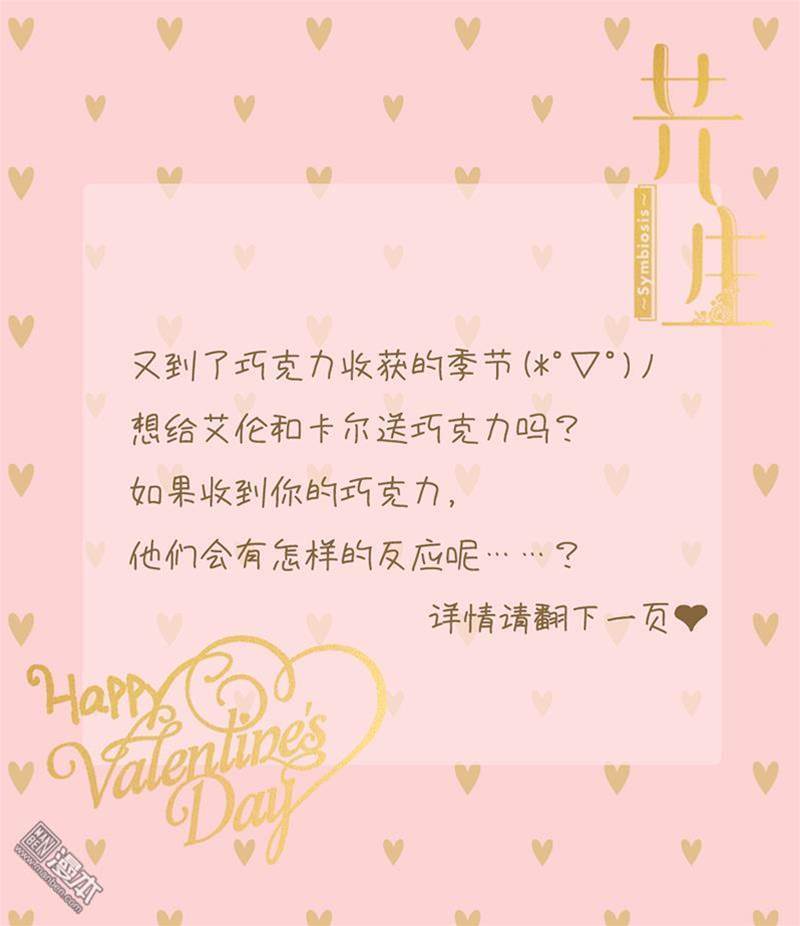 共生
~Symbiosis~
又到了巧克力收获的季节(*°▽°)ﾉ
想给艾伦和卡尔送巧克力吗？
如果收到你的巧克力，
他们会有怎样的反应呢……？
详情请翻下一页❤
Happy
Valentine's
Day
MAN BEN 漫本
www.manben.com